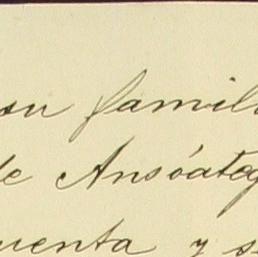 su famil
de Ansóateg
uenta y s